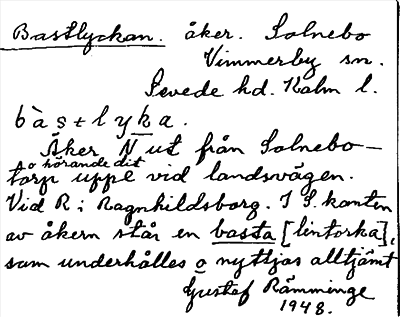 Bastlyckan. åker. Solnebo
Vimmerby sn.
Sevede hd. Kalm l.
bàstlyka.
Åker N ut från Solnebo-
o hörande dit
torp uppe vid landsvägen.
Vid R: Ragnhildsborg. I S. kanten
av åkern står en basta [lintorka],
som underhålles o nyttjas alltjämt
Gustaf Rämminge
1948.